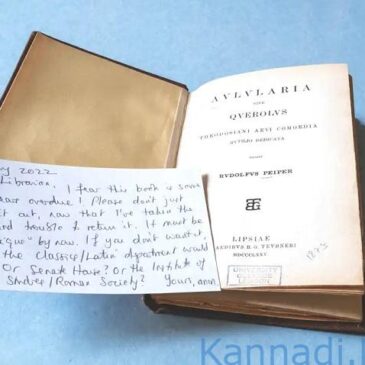 AVLVLARIA
SIVE
QVEROLVS
THEODOSIANI AEVI COMOEDIA
RVTILIO DEDICATA
EDIDIT
RVDOLFVS PEIPER
LIPSIAE
AEDIBVS B. G. TEVBNERI
MDCCCLXXV
UNIVERSITY
COLLEGE
LONDON
1875
2022
Librarian, I fear this book is some
overdue! Please don't just
it out, now that I've taken the
trouble to return it. It must be
by now. If you don't want it,
the Classics/Latin department would
Or Senate House? Or the Institute of
Studies/Roman Society? Yours, anon.
Kannadi.